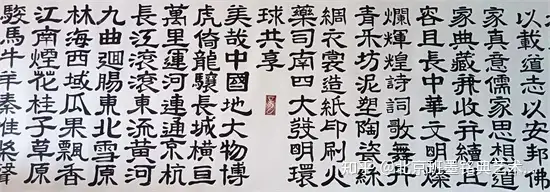 以載道志以安邦佛
家真意儒家思想道
家典藏兼收并
容且長中華文明燦
爛輝煌詩詞歌舞丹
青禾坊泥塑陶瓷絲
綢衣裳造紙印刷火
藥司南四大發明環
球共享
美哉中國地大物博
虎倚龍驤長城橫亘
萬里運河連通京杭
長江滾滾東流黃河
九曲迴腸東北雪原
林海西域瓜果飄香
江南煙花桂子草原
駿馬牛羊秦淮槳聲
知乎 @北京翰墨铭典艺术